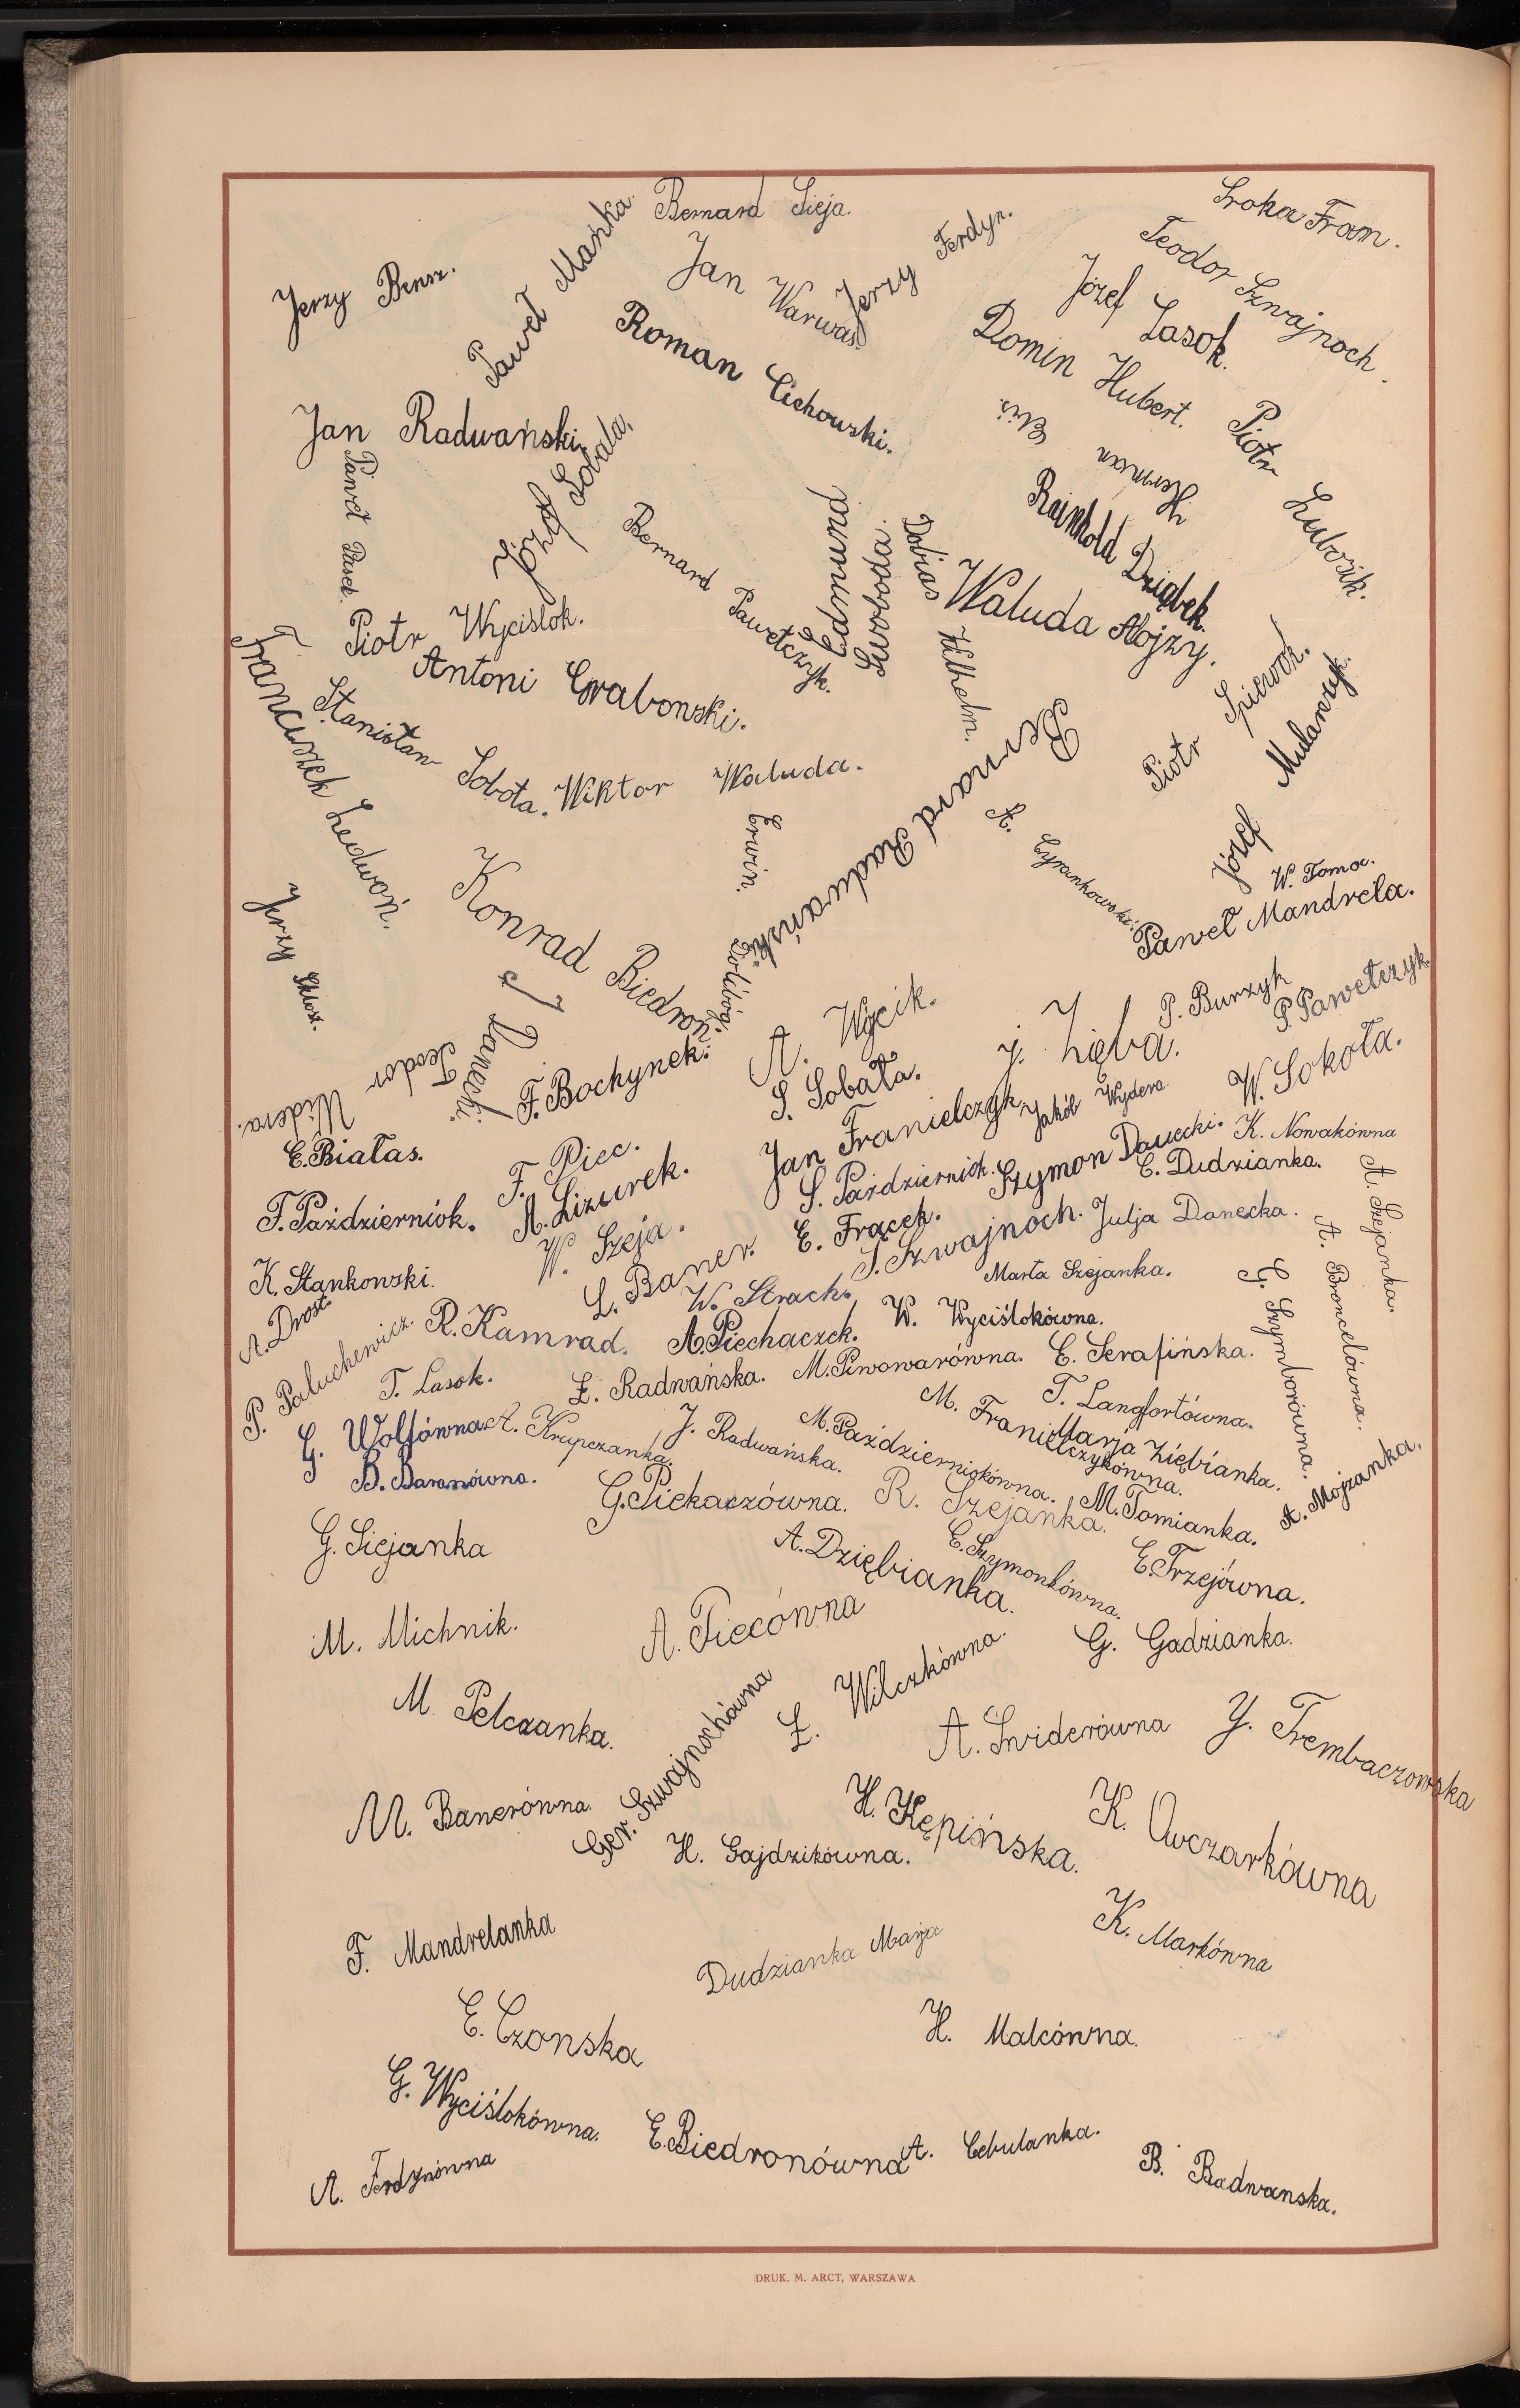 Bernard Sieja.
Sroka Fran.
Paweł Mańka
Jerzy Ferdyn.
Teodor Szwajnoch.
Jan Warwas.
Jerzy Bensz.
Józef Lasok.
Roman Cichowski.
Domin Hubert.
Jan Radwański.
Józef Sobala.
Herman Elis.
Piotr Lubosik.
Paweł Pasek.
Rainhold Dziąbek.
Bernard Pawełczyk.
Edmund Swoboda.
Dobias Wilhelm.
Waluda Alojzy.
Piotr Wyciślok.
Antoni Grabowski.
Franciszek Ledwoń.
Stanisław Sobota.
Wiktor Waluda.
Bernard Radwański
Piotr Śpiewok.
Józef Mularczyk.
A. Cyrankowski.
Erwin
W. Toma.
Paweł Mandrela.
Konrad Biedroń.
Jerzy
J. Danecki.
Teodor Widera.
F. Bochynek.
A. Wycik.
J. Zięba.
P. Burzyk
P. Pawełczyk
S. Sobała.
W. Sokoła.
Jan Franielczyk
Jakób Wydera
E. Białas.
F. Piec.
S. Październiok.
Szymon Danecki.
K. Nowakówna
E. Dudzianka.
A. Szejanka.
F. Październiok.
A. Lizurek.
W. Szeja.
E. Frącek.
S. Szwajnoch.
Julja Danecka.
A. Broncelówna.
K. Stankowski.
L. Baner.
W. Strach.
Marta Szejanka.
G. Szymborówna.
A. Drost.
P. Paluchewicz.
R. Kamrad.
A. Piechaczek.
W. Wyciślokówna.
T. Lasok.
Ł. Radwańska.
M. Piwowarówna.
E. Serafińska.
G. Wolfówna
A. Krupczanka.
J. Radwańska.
M. Październiokówna.
M. Franielczykówna.
T. Langfortówna.
Marja Ziębianka.
B. Baranówna.
G. Piekaczówna.
R. Szejanka.
M. Tomianka.
A. Mojzanka.
G. Siejanka
A. Dziębianka.
E. Szymonkówna.
E. Trzejówna.
M. Michnik.
A. Piecówna
G. Gadzianka.
M. Pelczanka.
Ger. Szwajnochówna
Ł. Wilczkówna.
A. Świderówna
Y. Trembaczowska
M. Banerówna.
H. Gajdzikówna.
H. Kępińska.
K. Owczarkówna
F. Mandrelanka
Dudzianka Marja
K. Markówna
E. Czonska
H. Malcówna.
G. Wyciślokówna.
E. Biedronówna
A. Cebulanka.
A. Ferdynówna
B. Radwanska.
DRUK. M. ARCT, WARSZAWA